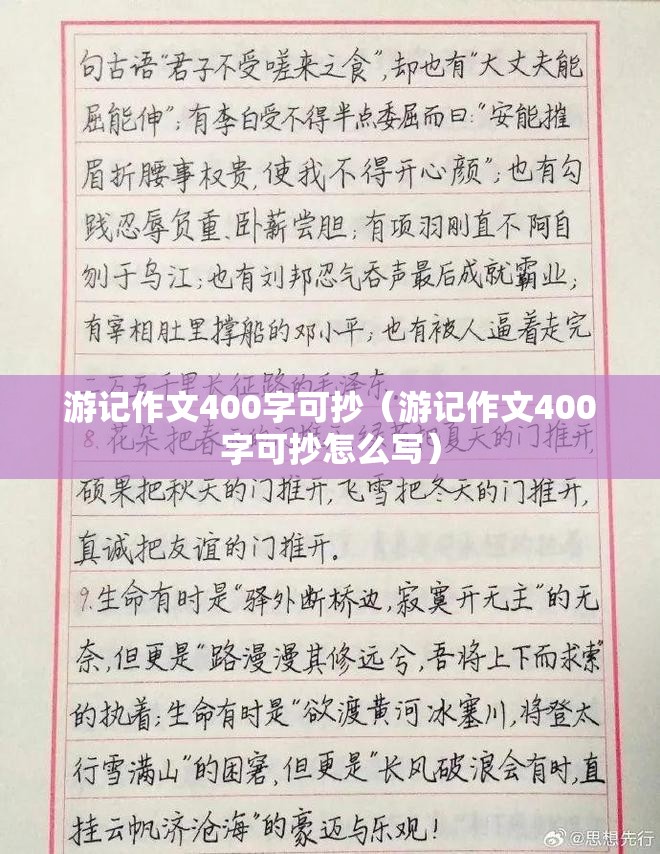 句古语“君子不受嗟来之食”,却也有“大丈夫能
屈能伸”;有李白受不得半点委屈而曰:“安能摧
眉折腰事权贵,使我不得开心颜”;也有勾
践忍辱负重、卧薪尝胆;有项羽刚直不阿自
刎于乌江;也有刘邦忍气吞声最后成就霸业;
有宰相肚里撑船的邓小平;也有被人逼着走完
二万五千里长征路的毛泽东。
游记作文400字可抄（游记作文400
字可抄怎么写）
8.花朵把春天的门推开,绿荫把夏天的门推开,
硕果把秋天的门推开,飞雪把冬天的门推开,
真诚把友谊的门推开。
9.生命有时是“驿外断桥边,寂寞开无主”的无
奈,但更是“路漫漫其修远兮,吾将上下而求索”
的执着;生命有时是“欲渡黄河冰塞川,将登太
行雪满山”的困窘,但更是“长风破浪会有时,直
挂云帆济沧海”的豪迈与乐观!
@思想先行